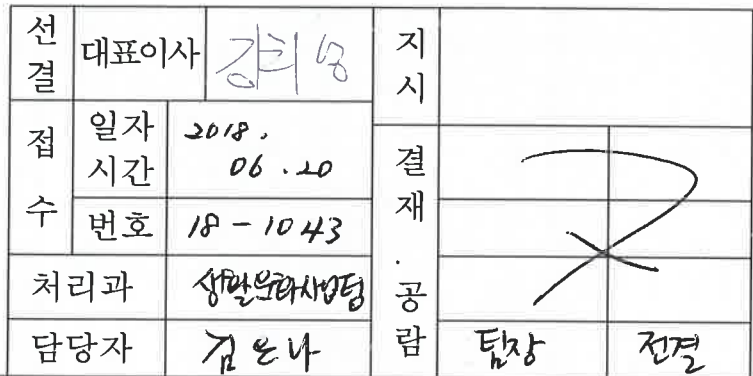 선결 대표이사
지시
접수 일자 시간 2018. 06.20
번호 18-1043
결재·공람
처리과 생활문화사업팀
담당자 김은나
팀장 전결